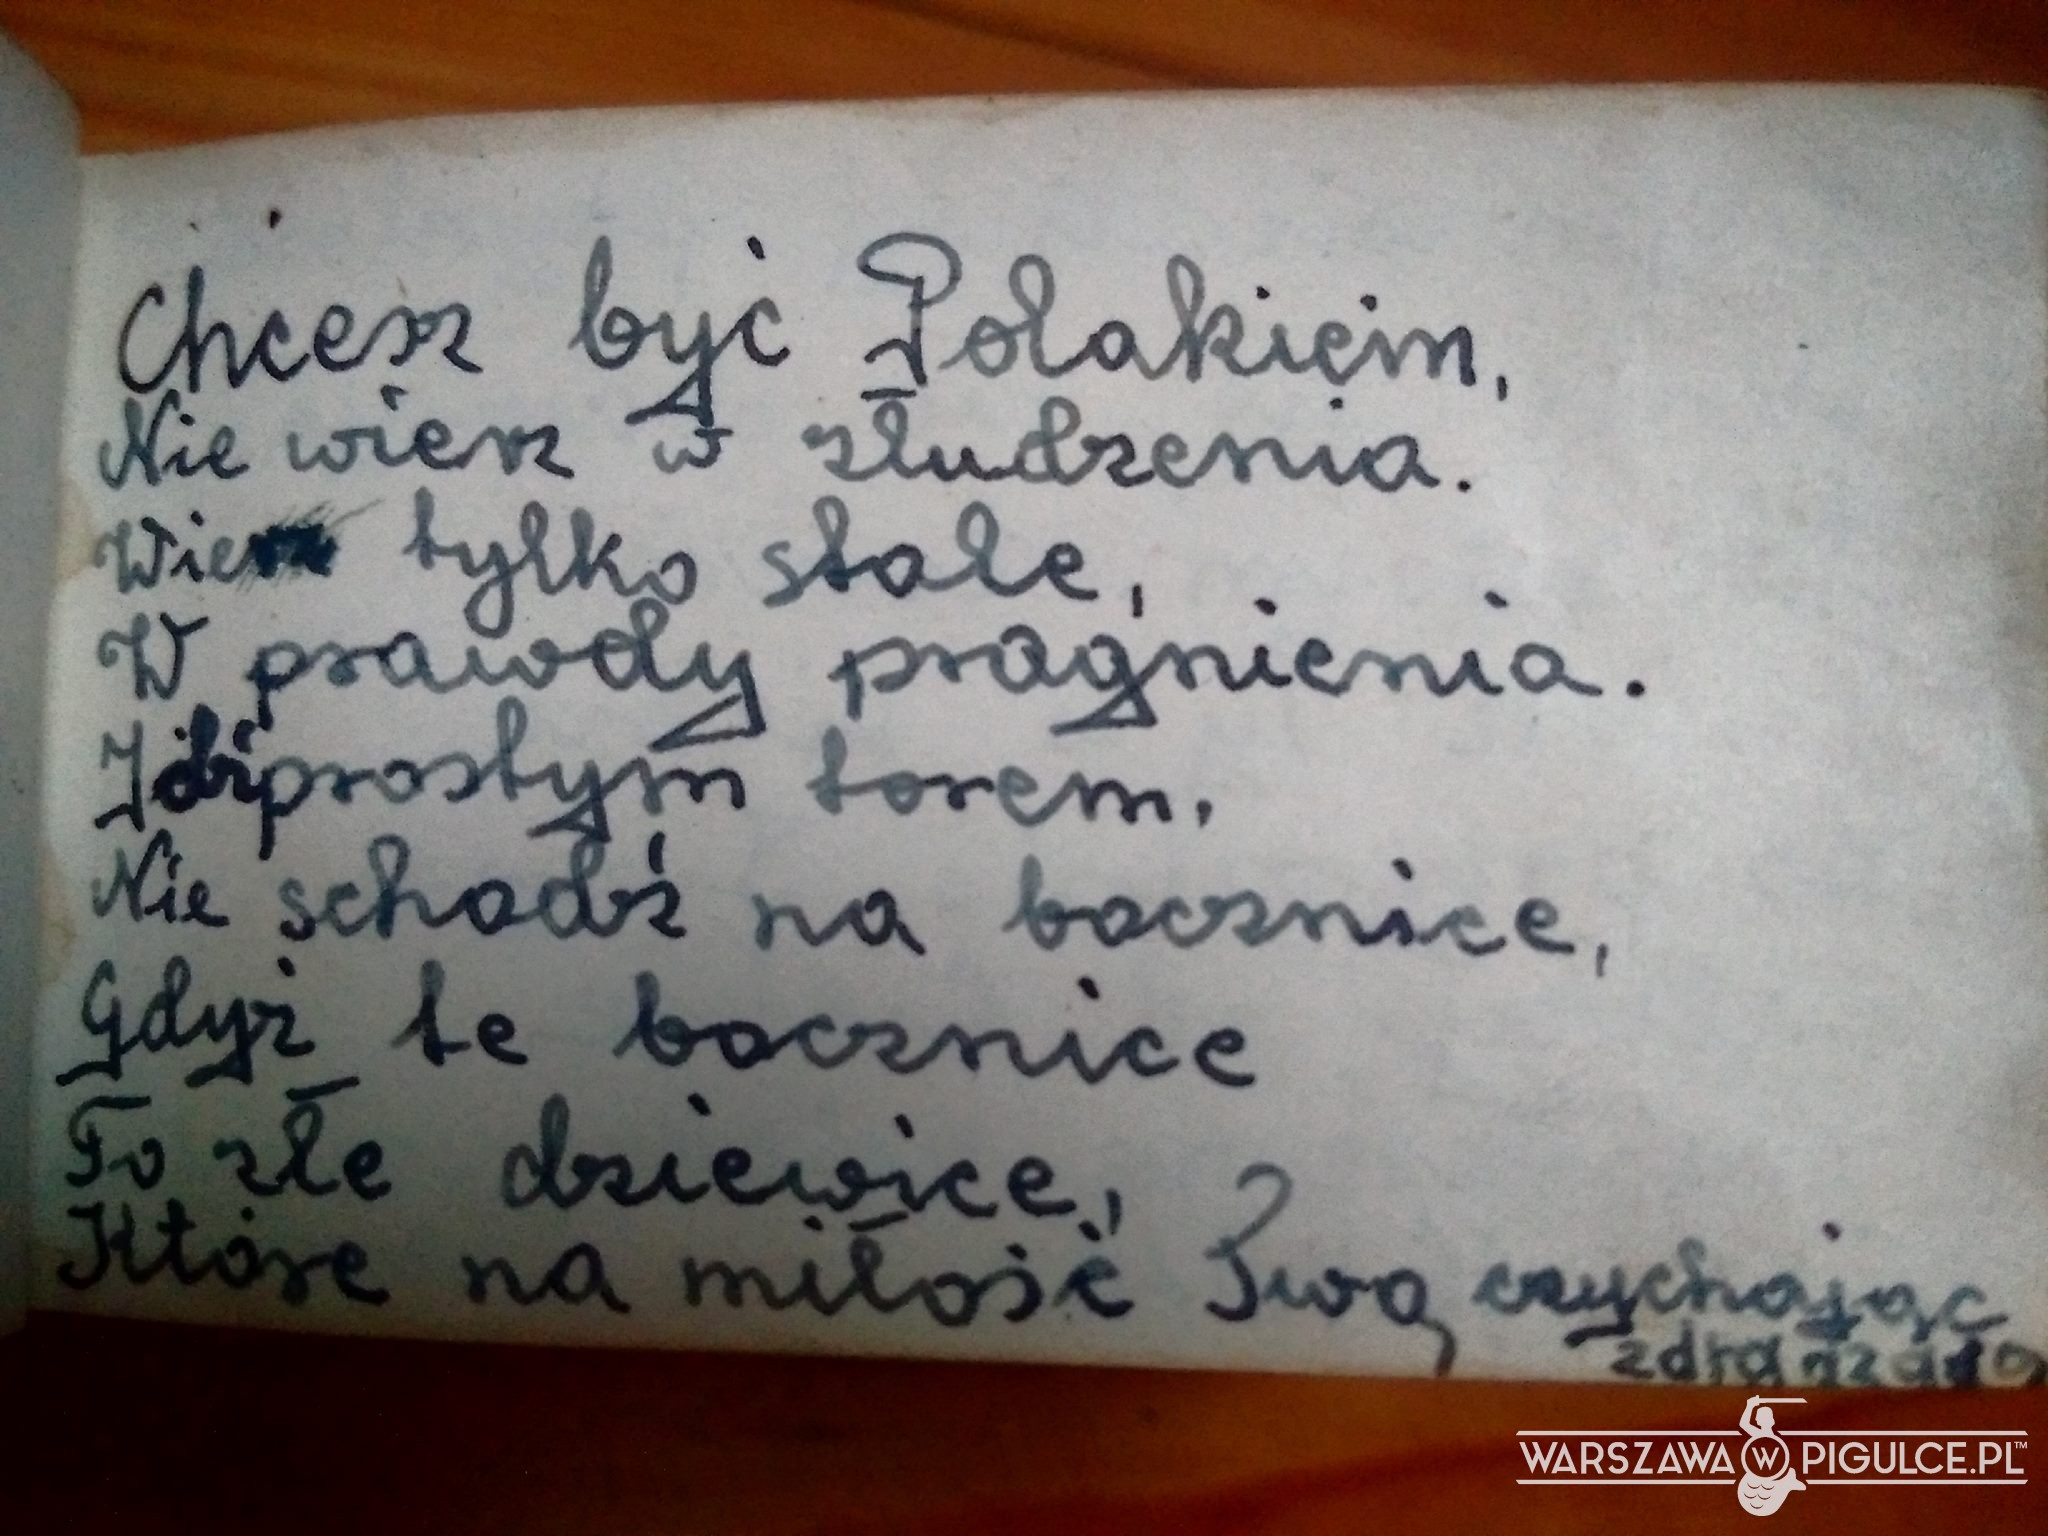 Chcesz być Polakiem,
Nie wiesz w złudzenia.
Wierz tylko stale,
W prawdy pragnienia.
Idź prostym torem,
Nie schodź na bocznice,
Gdyż te bocznice
To złe dziewice,
Które na miłość Twą czychając
WARSZAWA W PIGULCE.PL™